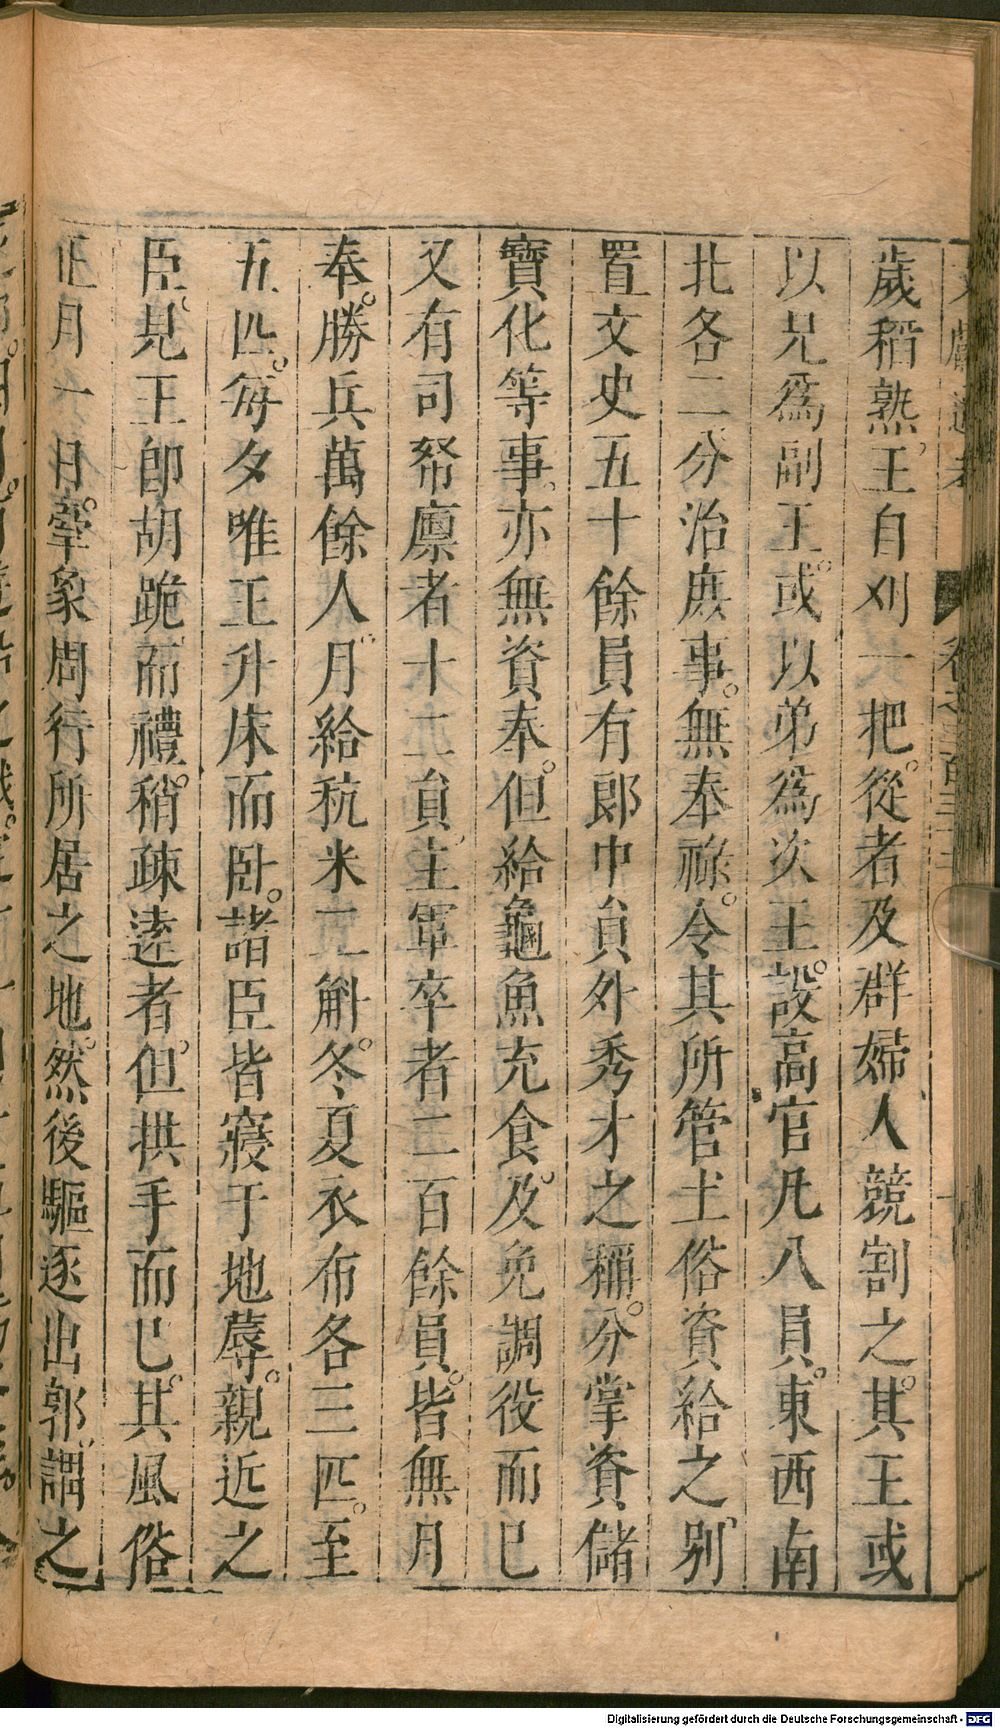 歲稻熟王自刈一把從者及群婦人競割之其王或
以兄爲副王或以弟爲次王設高官凡八員東西南
北各二分治庶事無奉祿令其所管土俗資給之別
置文史五十餘員有郎中員外秀才之稱分掌資儲
寶化等事亦無資奉但給龜魚充食及免調役而已
又有司帑廪者十二員主軍卒者二百餘員皆無月
奉勝兵萬餘人月給秔米二斛冬夏衣布各三匹至
五匹每夕唯王升床而卧諸臣皆寢于地蓐親近之
臣見王卽胡跪而禮稍疎遠者但拱手而已其風俗
正月一日牽象周行所居之地然後驅逐出郭謂之
Digitalisierung gefördert durch die Deutsche Forschungsgemeinschaft - DFG